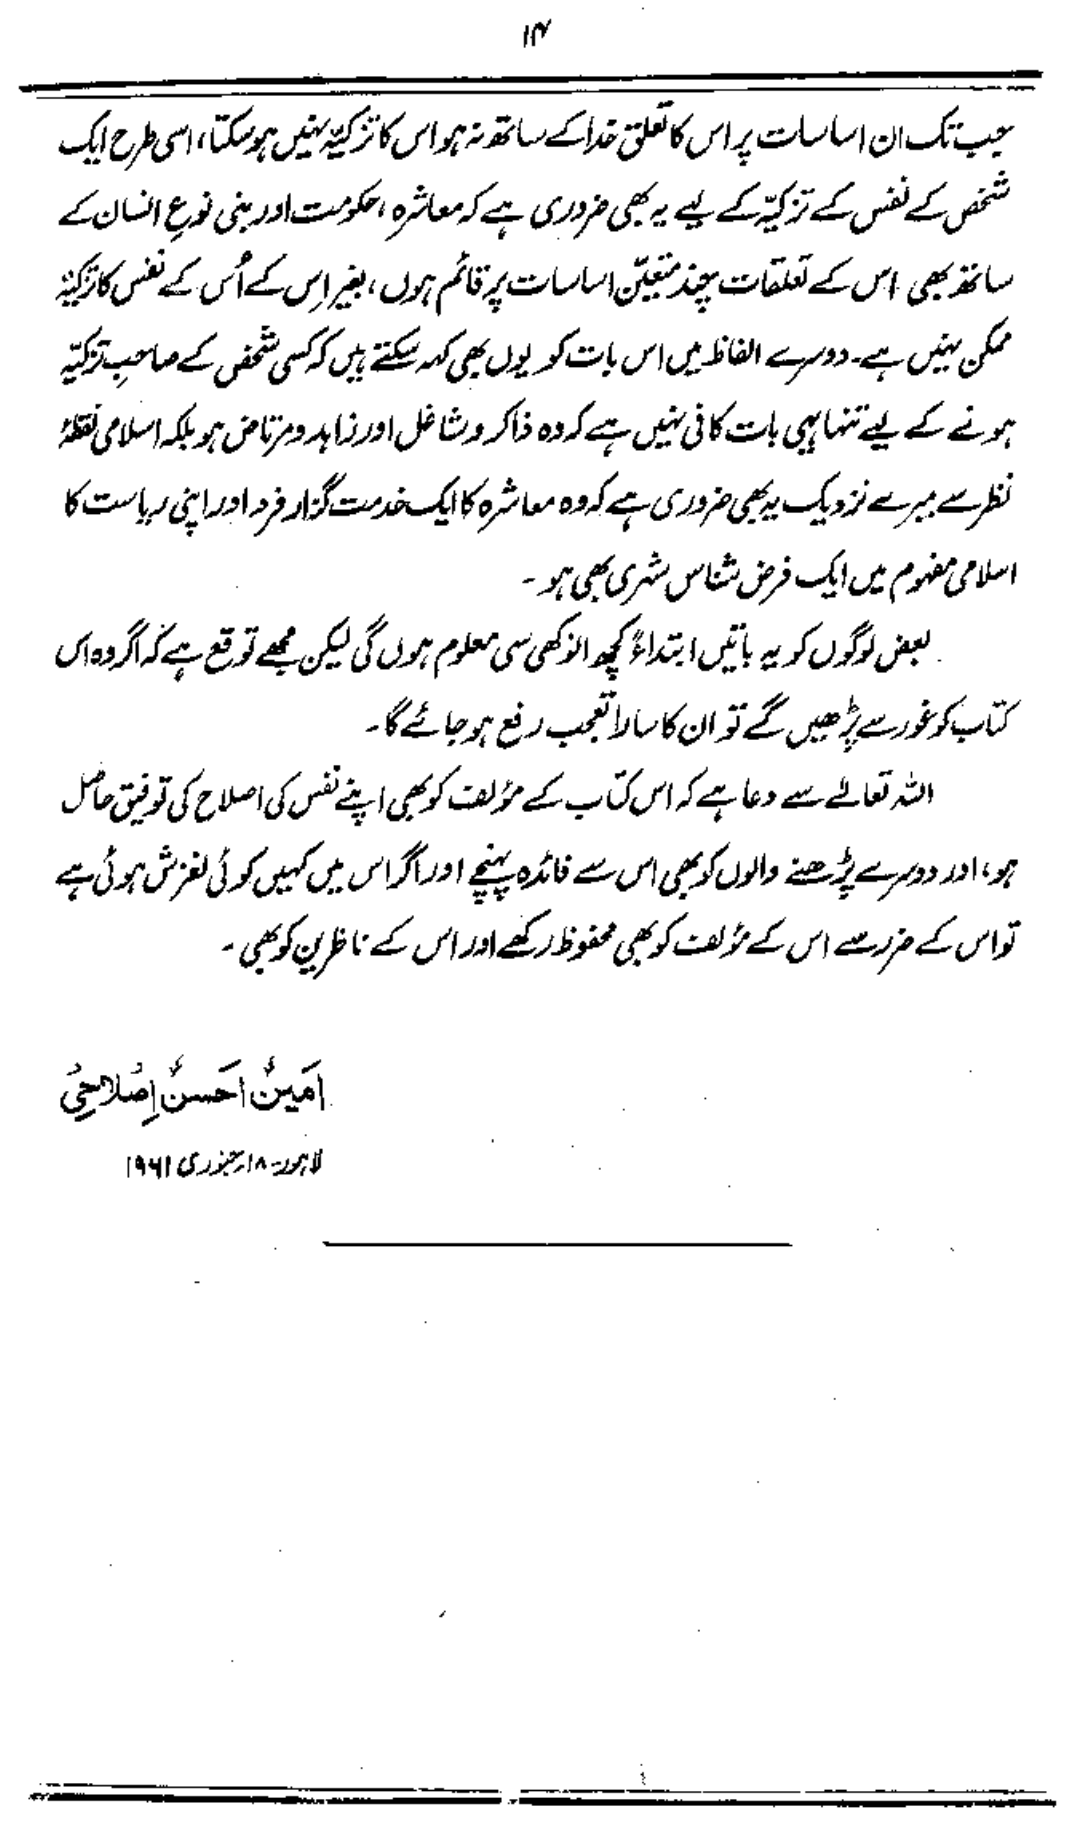 ۱۴
جب تک ان اساسات پر اس کا تعلق خدا کے ساتھ نہ ہو اس کا تزکیّہ نہیں ہو سکتا، اسی طرح ایک
شخص کے نفس کے تزکیّہ کے لیے یہ بھی ضروری ہے کہ معاشرہ، حکومت اور بنی نوعِ انسان کے
ساتھ بھی اس کے تعلقات چند متعیّن اساسات پر قائم ہوں، بغیر اِس کے اُس کے نفس کا تزکیّہ
ممکن نہیں ہے۔ دوسرے الفاظ میں اس بات کو یوں بھی کہہ سکتے ہیں کہ کسی شخص کے صاحبِ تزکیّہ
ہونے کے لیے تنہا یہی بات کافی نہیں ہے کہ وہ ذاکر و شاغل اور زاہد و مرتاض ہو بلکہ اسلامی نقطۂ
نظر سے میرے نزدیک یہ بھی ضروری ہے کہ وہ معاشرہ کا ایک خدمت گزار فرد اور اپنی ریاست کا
اسلامی مفہوم میں ایک فرض شناس شہری بھی ہو۔
بعض لوگوں کو یہ باتیں ابتداءً کچھ انوکھی سی معلوم ہوں گی لیکن مجھے توقع ہے کہ اگر وہ اس
کتاب کو غور سے پڑھیں گے تو ان کا سارا تعجب رفع ہو جائے گا۔
اللہ تعالےٰ سے دعا ہے کہ اس کتاب کے مؤلف کو بھی اپنے نفس کی اصلاح کی توفیق حاصل
ہو، اور دوسرے پڑھنے والوں کو بھی اس سے فائدہ پہنچے اور اگر اس میں کہیں کوئی لغزش ہوئی ہے
تو اس کے ضرر سے اس کے مؤلف کو بھی محفوظ رکھے اور اس کے ناظرین کو بھی۔
امین احسن اصلاحی
لاہور۔ ۱۸ر جنوری ۱۹۶۱